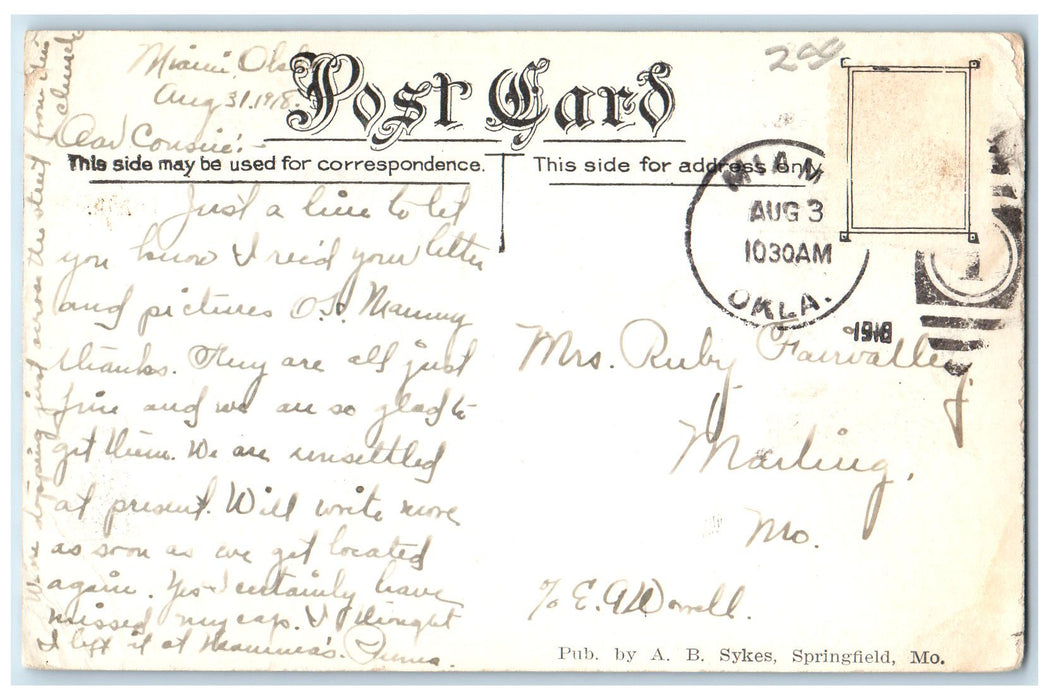 Post Card
This side may be used for correspondence.
This side for address only
299
Miami, Okla
Aug 31, 1918.
Dear Cousin:-
Just a line to let
you know I rec'd your letter
and pictures O.K. Many
thanks. They are all just
fine and we are so glad to
get them. We are unsettled
at present. Will write more
as soon as we get located
again. Yes I certainly have
missed my cap. I thought
I left it at Mamma's.
We are stopping just across the street from this
church
MIAMI
AUG 3
1030AM
OKLA.
1918
1
Mrs. Ruby Fairvalley,
Marling,
Mo.
% E.
Pub. by A. B. Sykes, Springfield, Mo.